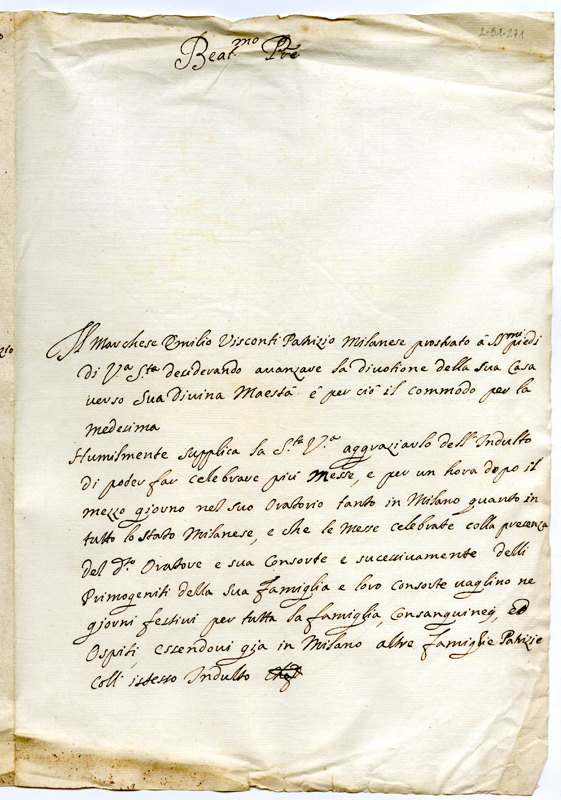 2-B1-271
Beat.mo Pre
Il Marchese Emilio Visconti Patrizio Milanese prostrato à SSmi piedi
di V.a S.ta desiderando avanzare la divotione della sua Casa
verso Sua Divina Maestà è per ciò il commodo per la
medesima
Humilmente supplica la S.ta V.a aggraziarlo dell'Indulto
di poter far celebrare più Messe, e per un hora dopo il
mezzo giorno nel suo Oratorio tanto in Milano quanto in
tutto lo Stato Milanese, e che le Messe celebrate colla presenza
del d.to Oratore e sua Consorte e sucessivamente delli
Primogeniti della sua famiglia e loro Consorte vaglino ne
giorni festivi per tutta la famiglia, Consanguinej, Ed
Ospiti, essendovi gia in Milano altre famiglie Patrizie
coll istesso Indulto